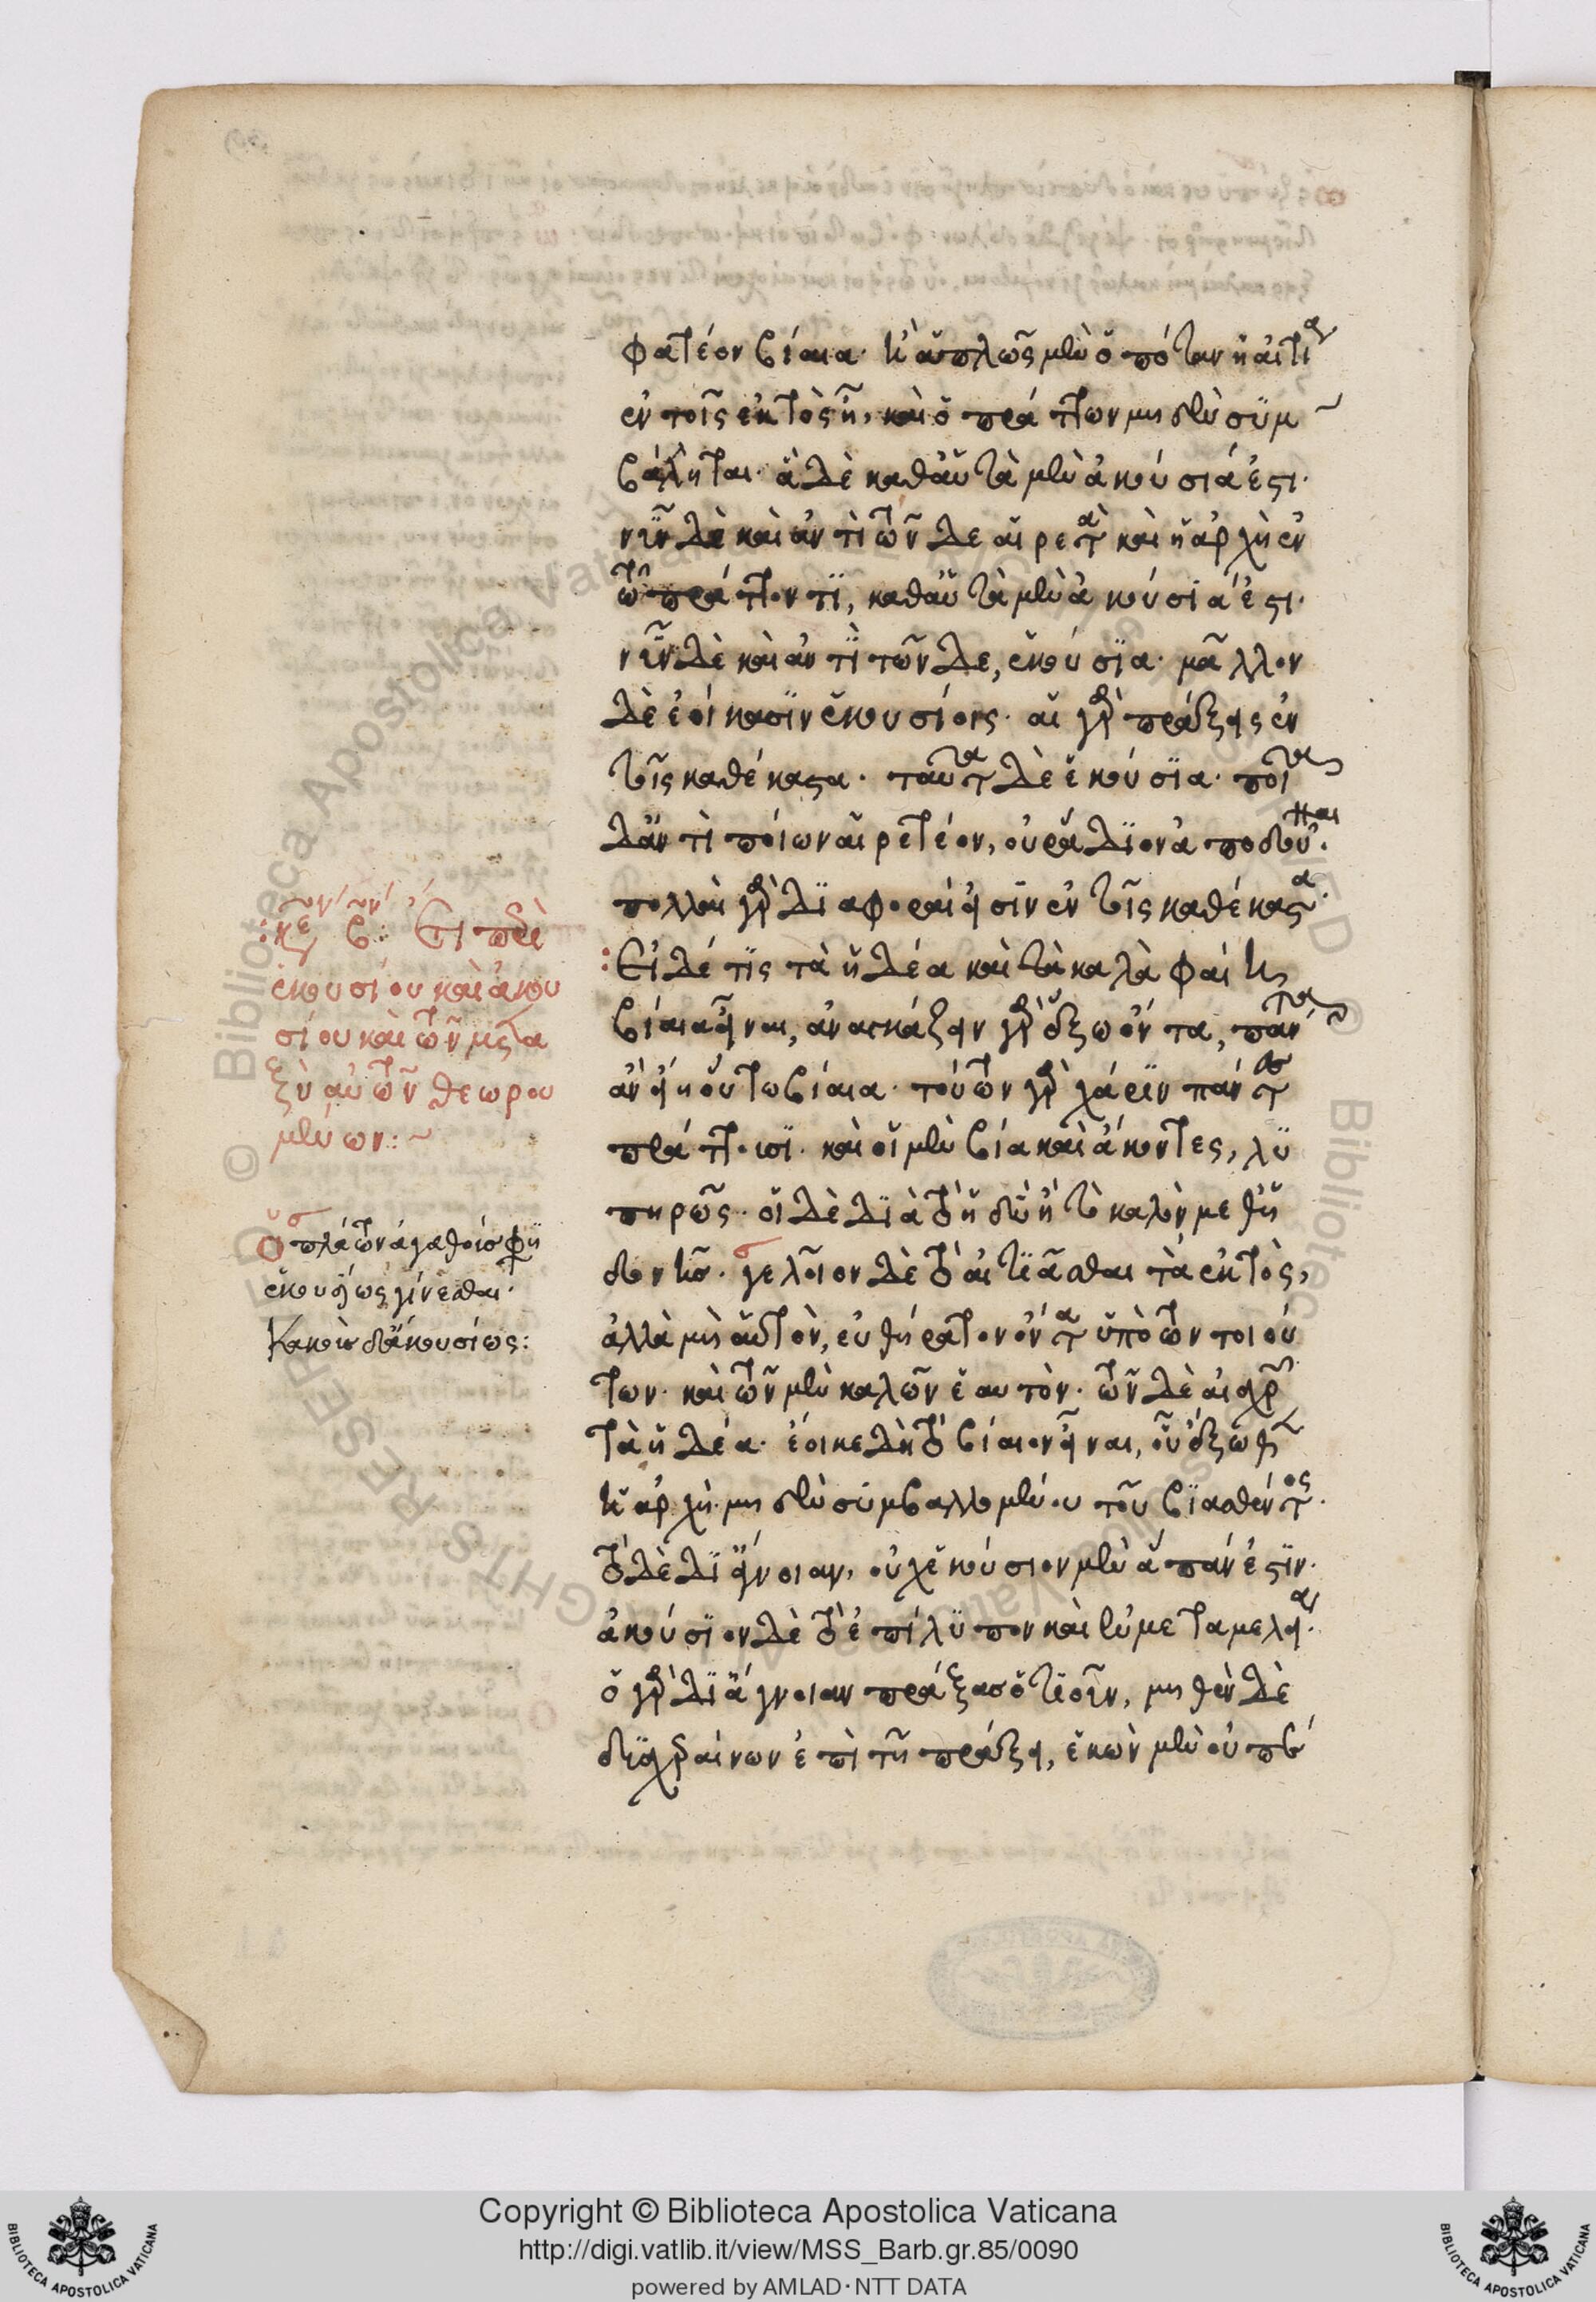 φατέον βίαια· ἢ ἁπλῶς μὲν ὁπόταν ἡ αἰτία
ἐν τοῖς ἐκτὸς ἦ, καὶ ὁ πράττων μηδὲν συμ
βάληται· ἃ δὲ καθαὑτὰ μὲν ἀκούσιά ἐστι·
νῦν δὲ καὶ ἀντὶ τῶνδε αἱρετὰ καὶ ἡ ἀρχὴ ἐν
τῶ πράττοντι, καθαὑτὰ μὲν ἀκούσιά ἐστι·
νῦν δὲ καὶ ἀντὶ τῶνδε, ἑκούσια· μᾶλλον
δὲ ἐοίκασιν ἑκουσίοις· αἱ γὰρ πράξεις ἐν
τοῖς καθέκαστα· ταῦτα δὲ ἑκούσια· ποῖα
δ' ἀντὶ ποίων αἱρετέον, οὐ ράδιον ἀποδοῦναι·
πολλαὶ γὰρ διαφοραὶ εἰσὶν ἐν τοῖς καθέκαστα·
Εἰ δέ τις τὰ ἡδέα καὶ τὰ καλὰ φαίη
βίαια εἶναι, ἀναγκάζειν γὰρ ἔξω ὄντα, πάντα
ἂν εἴη οὕτω βίαια· τούτων γὰρ χάριν πάντα
πράττουσι· καὶ οἱ μὲν βία καὶ ἄκοντες, λυ
πηρῶς· οἱ δὲ διὰ τὸ ἡδὺ ἢ τὸ καλὸν μεθ' ἡ
δονῆς· γελοῖον δὲ τὸ αἰτιᾶσθαι τὰ ἐκτὸς,
ἀλλὰ μὴ αὑτὸν, εὐθήρατον ὄντα ὑπὸ τῶν τοιού
των· καὶ τῶν μὲν καλῶν ἑαυτόν· τῶν δὲ αἰσχρῶν
τὰ ἡδέα· ἔοικε δὴ τὸ βίαιον εἶναι, οὗ ἔξωθεν
ἡ ἀρχὴ· μηδὲν συμβαλλομένου τοῦ βιασθέντος·
τὸ δὲ δι' ἄγνοιαν, οὐχ ἑκούσιον μὲν ἅπαν ἐστίν·
ἀκούσιον δὲ τὸ ἐπίλυπον καὶ ἐν μεταμελεία·
ὁ γὰρ δι' ἄγνοιαν πράξας ὁτιοῦν, μηθὲν δὲ
δυσχεραίνων ἐπὶ τῆ πράξει, ἑκὼν μὲν οὐ πέ
κεφάλαιον β: Ἔτι περὶ
ἑκουσίου καὶ ἀκου
σίου καὶ τῶν μετα
ξὺ αὐτῶν θεωρου
μένων:~
Ὁ πλάτων ἀγαθοὺς φησὶ
ἑκουσίως γίνεσθαι·
κακοὺς δ' ἀκουσίως:
Copyright © Biblioteca Apostolica Vaticana
http://digi.vatlib.it/view/MSS_Barb.gr.85/0090
powered by AMLAD·NTT DATA